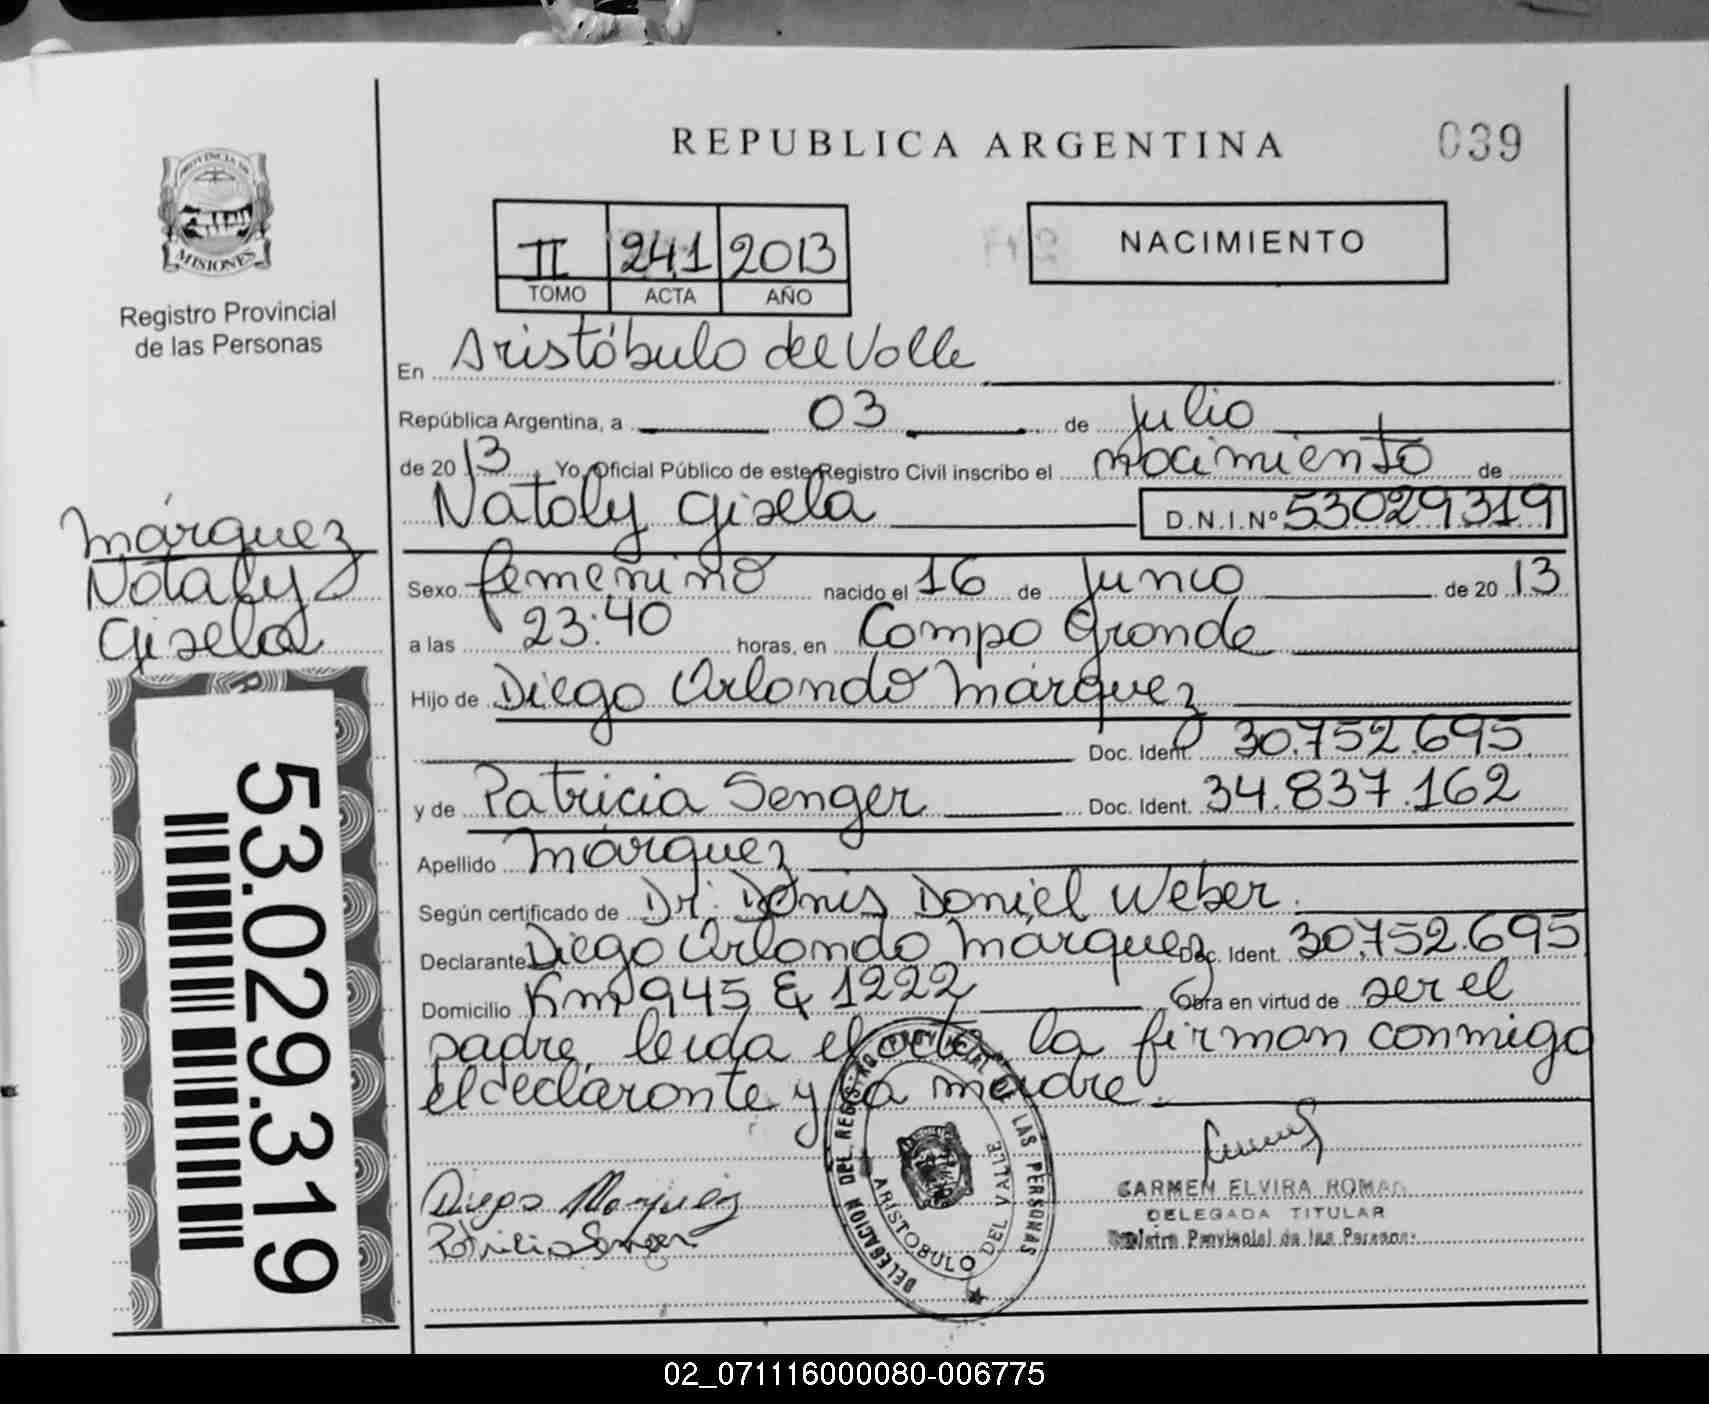 REPUBLICA ARGENTINA
039
PROVINCIA DE
MISIONES
Registro Provincial
de las Personas
II 241 2013
TOMO ACTA AÑO
NACIMIENTO
En Aristóbulo del Valle
República Argentina, a 03 de Julio
de 20 13. Yo, Oficial Público de este Registro Civil inscribo el nacimiento de
Nataly Gisela D.N.I.Nº 53029319
Márquez
Nataly
Gisela
Sexo femenino nacido el 16 de Junio de 20 13
a las 23:40 horas, en Campo Grande
Hijo de Diego Orlando Márquez
Doc. Ident. 30.752.695
y de Patricia Senger Doc. Ident. 34.837.162
Apellido Márquez
Según certificado de Dr. Denis Daniel Weber.
Declarante Diego Orlando Márquez Doc. Ident. 30.752.695
Domicilio Km 945 & 1222 Obra en virtud de ser el
padre, leida el acta la firman conmigo
el declarante y la madre.
53.029.319
Diego Marquez
Patricia Senger
DELEGACION DEL REGISTRO PROVINCIAL DE LAS PERSONAS
ARISTOBULO DEL VALLE
CARMEN ELVIRA ROMAN
DELEGADA TITULAR
Registro Provincial de las Personas
02_071116000080-006775